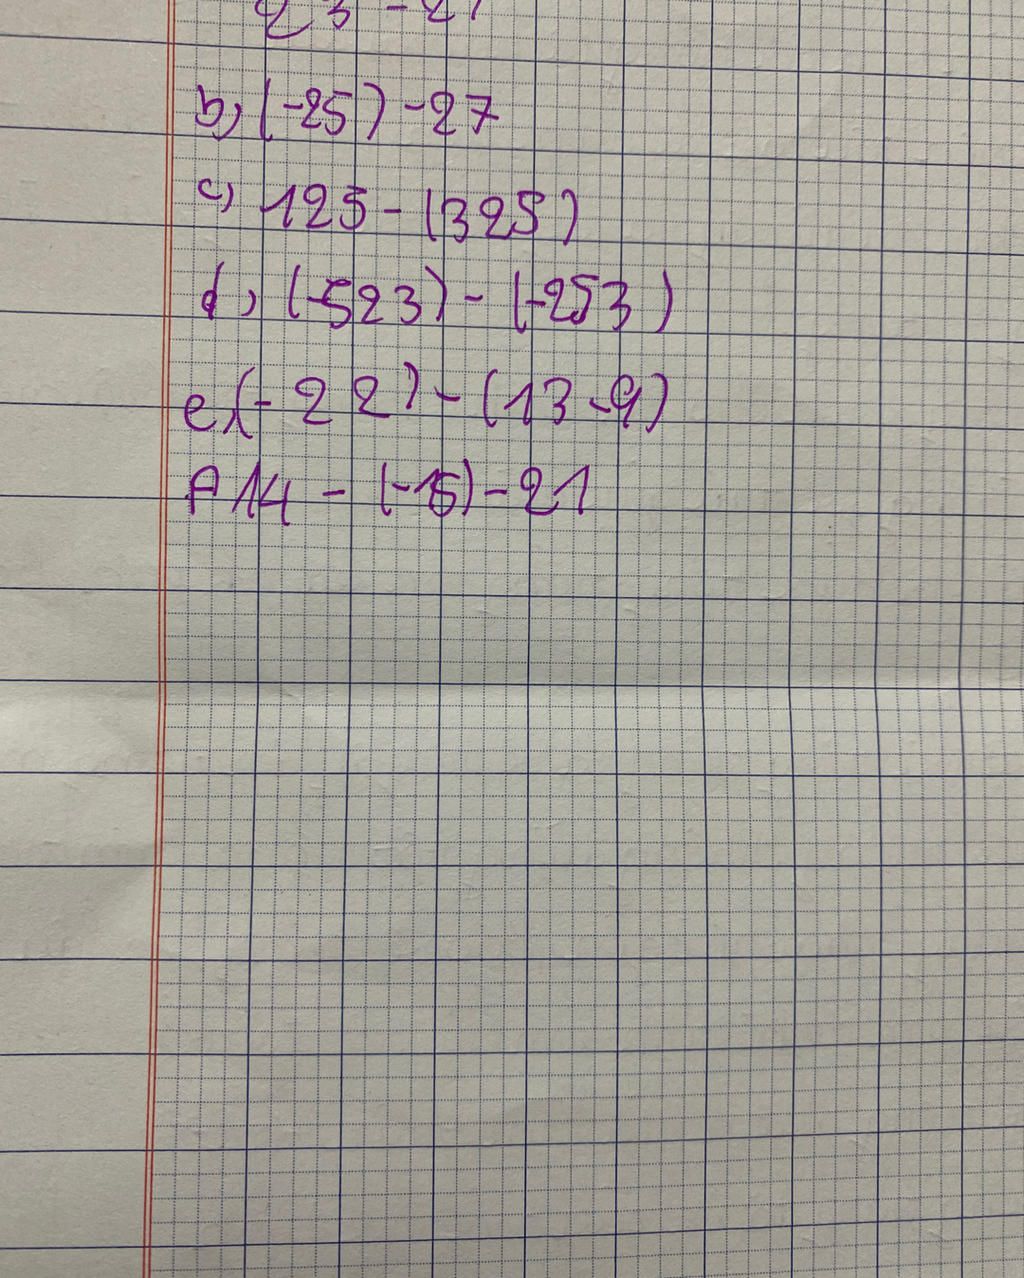 23 - 27
b, (-25) - 27
c) 125 - (325)
d, (-523) - (-253)
e, (-22) - (13 - 9)
f) 14 - (-15) - 21